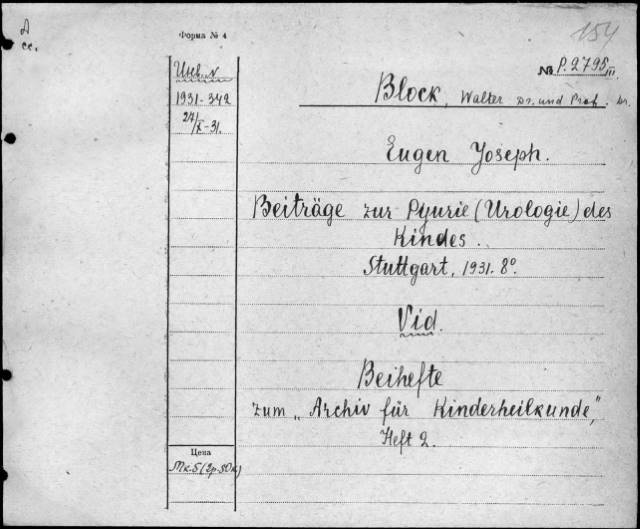 Форма № 4
154
№ P.2795 III
1931-342
24/X-31.
Block, Walter Dr. und Prof. Dr.
Eugen Joseph.
Beiträge zur Pyurie (Urologie) des
Kindes.
Stuttgart, 1931. 8°.
Vid.
Beihefte
zum „Archiv für Kinderheilkunde,"
Heft 2.
Цена
Mk.5 (2p.30k)